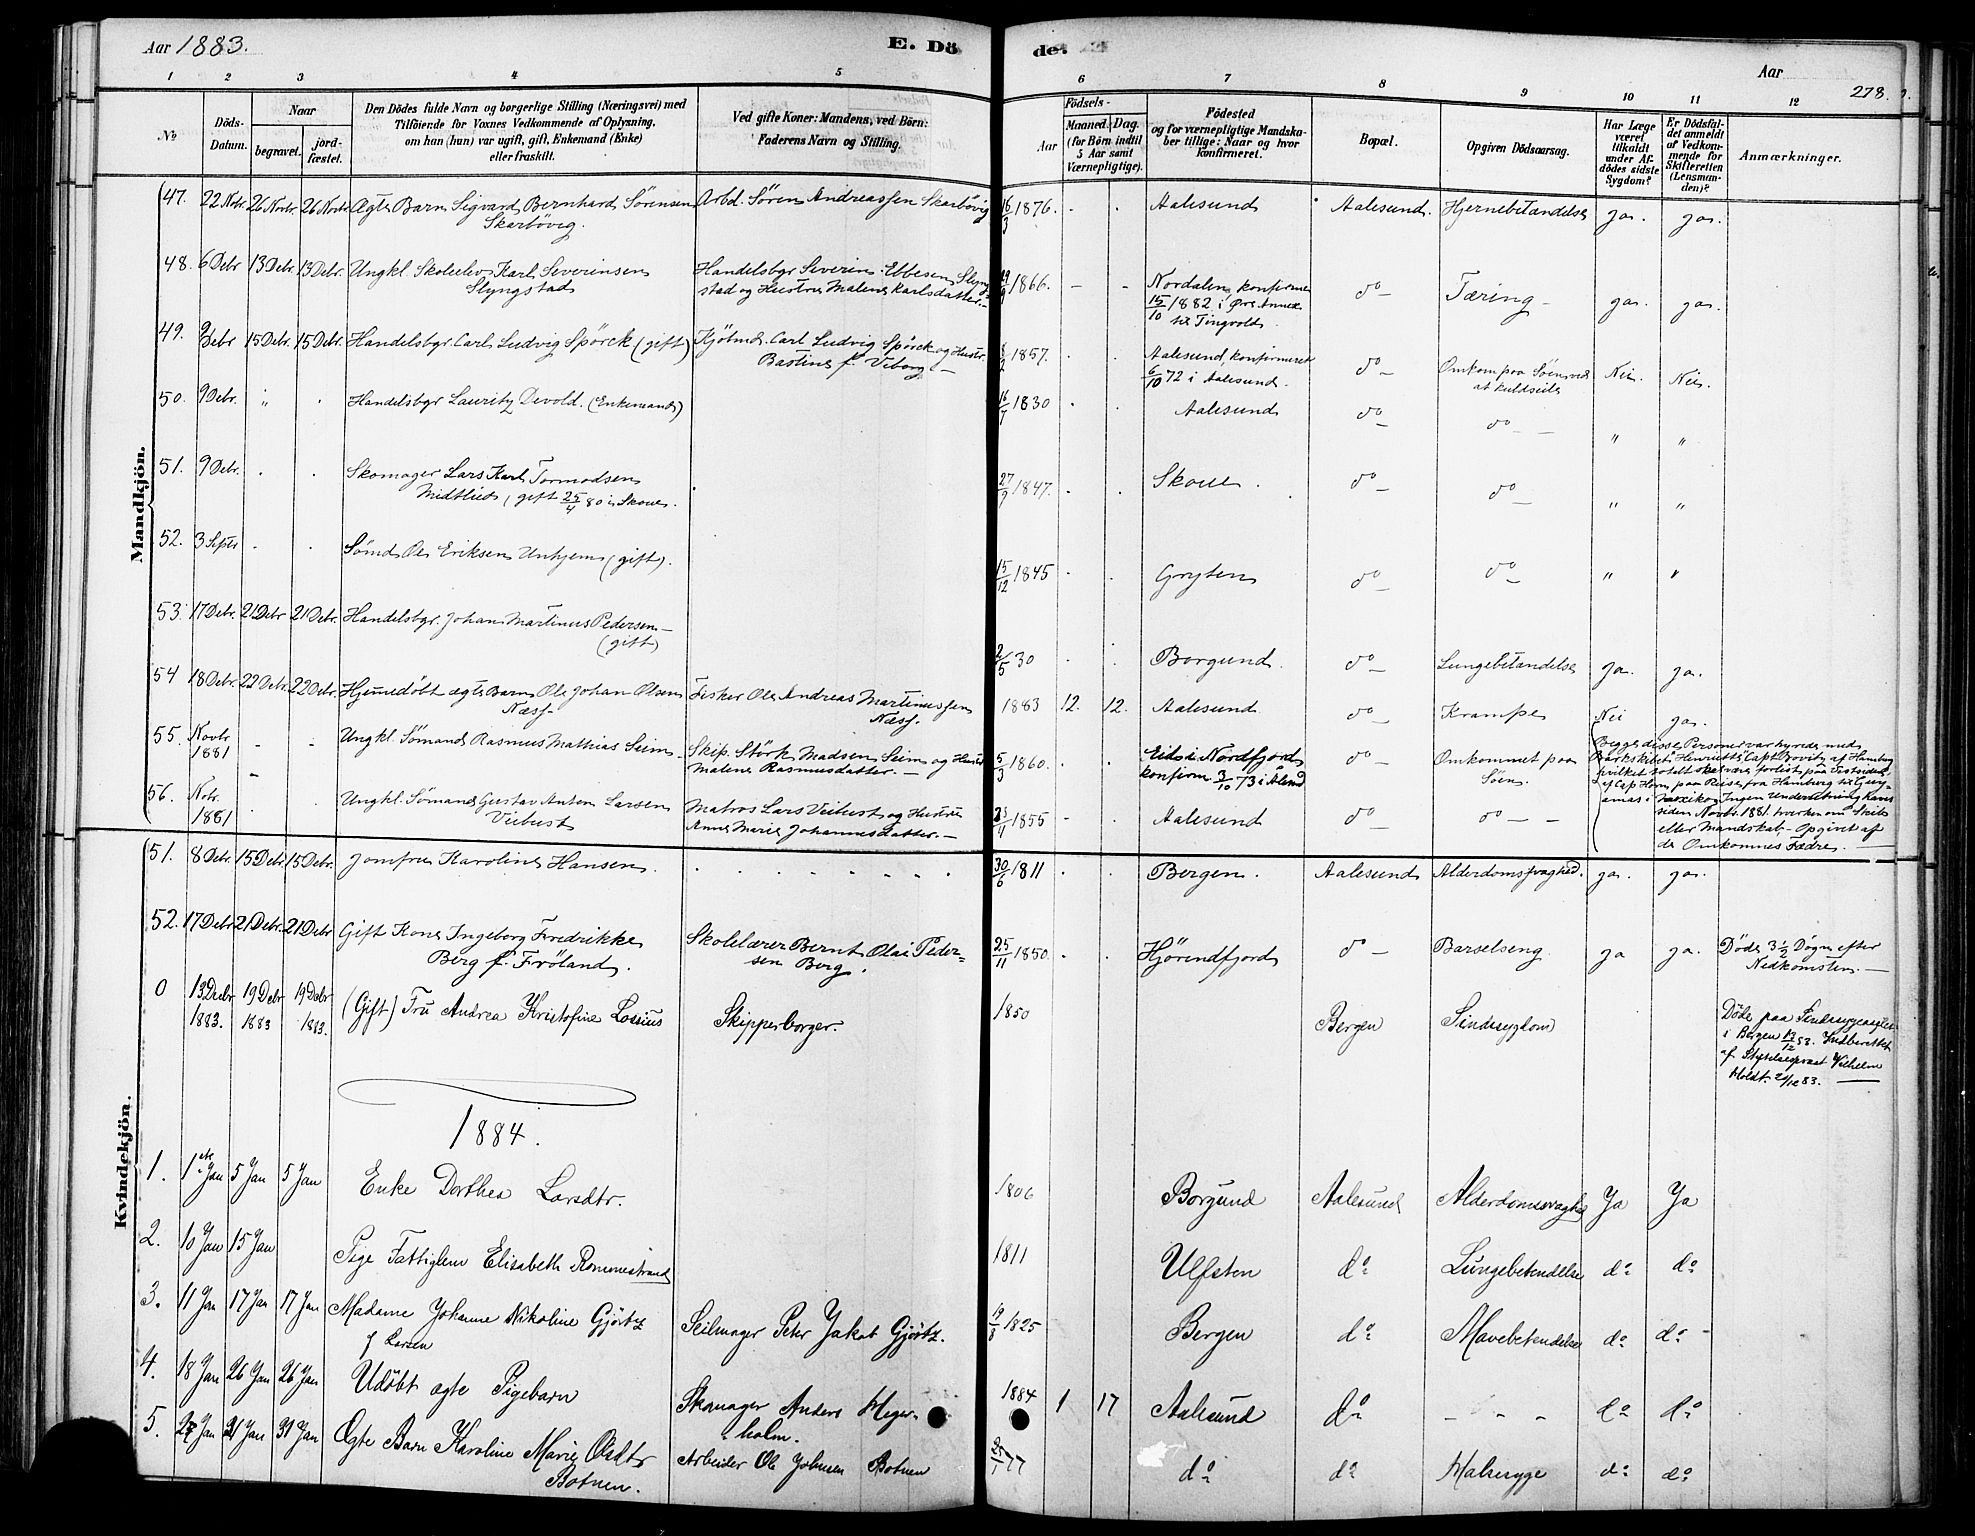 Aar 1883.
E. Dö
de.
Aar
278.
1 2 3 4 5 6 7 8 9 10 11 12
No
Döds-Datum.
Naar
begravet.
jordfæstet.
Den Dödes fulde Navn og borgerlige Stilling (Næringsvei) med
Tilföiende for Voxnes Vedkommende af Oplysning,
om han (hun) var ugift, gift, Enkemand (Enke)
eller fraskilt.
Ved gifte Koner: Mandens, ved Börn:
Faderens Navn og Stilling.
Födsels-
Aar
Maaned. Dag.
(for Börn indtil
5 Aar samt
Værnepligtige).
Födested
og for værnepligtige Mandska-
ber tillige: Naar og hvor
konfirmeret.
Bopæl.
Opgiven Dödsaarsag.
Har Læge
været
tilkaldt
under Af-
dödes sidste
Sygdom?
Er Dödsfal-
det anmeldt
af Vedkom-
mende for
Skifteretten
(Lensman-
den)?
Anmærkninger.
Mandkjön.
47. 22 Nobr 26 Novbr 26 Novbr Ægte Barn Sigvard Bernhard Sörensen Arbd. Sören Andreassen Skarbövig 16/3 1876. Aalesund Aalesund. Hjernebetændelse ja. ja.
Skarbövig.
48. 6 Debr 13 Debr. 13 Debr. Ungkl. Skoleelev Karl Severinsen Handelsbgr Severin Ebbesen Slyng- 1866. Nordalen, konfirme do Tæring ja. ja.
Slyngstad stad og Hustru Malene Karlsdatter. 15/10 1882 i Øre Annex
til Tingvold.
49. Debr 15 Debr. 15 Debr. Handelsbgr. Carl Ludvig Spörck (gift) Kjöbmd. Carl Ludvig Spörck og Hustr. 1857. Aalesund, konfirmeret do Omkom paa Söen ved Nei. Nei.
Bastine f. Viborg. 6/10 72 i Aalesund. at kuldseile
50. 9 Debr. " Handelsbgr Lauritz Devold. (Enkemand) 16/7 1830 Aalesund do do " "
51. 9 Debr. Skomager Lars Karl Tormodsen 27/9 1847. Skoue. do do " "
Midtlid, (gift 25/4 80 i Skoue.
52. 3 Septr Sömd Ole Eriksen Unhjem (gift). 15/12 1845 Gryten do do " "
53. 17 Debr. 21 Debr 21 Debr. Handelsbgr. Johan Martinus Pedersen 2/5 30 Borgund. do Lungebetændelse ja. ja.
(gift)
54 18 Debr. 22 Debr. 22 Debr. Hjemmedöbt ægte Barn Ole Johan Olsen Fisker Ole Andreas Martinussen 1883 12. 12. Aalesund do Krampe Nei ja.
Næss. Næss.
55. Novbr 1881 Ungkl. Sömand Rasmus Mathias Seim Skip. Störk Madsen Seim og Hustru 5/3 1860. Eids i Nordfjord do Omkommet paa
Malene Rasmusdatter. konfirm. 3/10 73 i Ålesund Söen.
Begge disse Personer var hyrede med
Barkskibet "Henriette" Capt Brovitz af Hamburg
hvilket totalt skal være forlist paa Vestsiden
af Cap Horn paa Reise fra Hamburg til Guay-
amas i Mexiko. Ingen Underretning havs
siden Novbr. 1881 hverken om Skib
eller Mandskab. Opgivet af
de Omkomnes Fædre.
56. Nobr. 1881 Ungkl. Sömand Gustav Anton Larsen Matros Lars Veibust og Hustru 1855 Aalesund do do
Veibust Anne Marie Johannesdatter.
Kvindekjön.
51. 8 Debr 15 Debr. 15 Debr. Jomfru Karoline Hansen. 30/6 1811 Bergen. Aalesund Alderdomssvaghed. ja. ja.
52. 17 Debr 21 Debr. 21 Debr Gift Kone Ingeborg Fredrikke Skolelærer Bernt Olai Peder- 25/11 1850. Hjörendfjord do Barselseng ja ja. Döde 3 1/2 Dögn efter
Berg f. Fröland. sen Berg. Nedkomsten.
0 13 Debr 1883. 19 Debr 1883 19 Debr 1883. (Gift) Fru Andrea Kristofine Lossius Skipperborger. 1850 Bergen Sindssygdom Döde paa Sindssygeasylet
i Bergen 13/12 83. Indberettet
af Stiftelsesprest Vilhelm
Holdt 21/12 83.
1884.
1. 1ste Jan 5 Jan 5 Jan Enke Dorthea Larsdtr. 1806 Borgund Aalesund Alderdomssvaghed Ja Ja
2. 10 Jan 15 Jan Pige Fattiglem Elisabeth Rommestrand 1811 Ulfsten do Lungebetendelse do do
3. 11 Jan 17 Jan 17 Jan Madame Johanne Nikoline Gjörtz Seilmager Peter Jakob Gjörtz. 19/8 1825 Bergen do Mavebetendelse do do
f Larsen
4. 18 Jan 26 Jan 26 Jan Udöbt ægte Pigebarn Skomager Anders Meger- 1884 1 17 Aalesund do - - - do do
holm.
5. Jan 31 Jan 31 Jan Ægte Barn Karoline Marie Olsdtr Arbeider Ole Johnsen Botnen 25/1 77 do do Halssyge do do
Botnen.